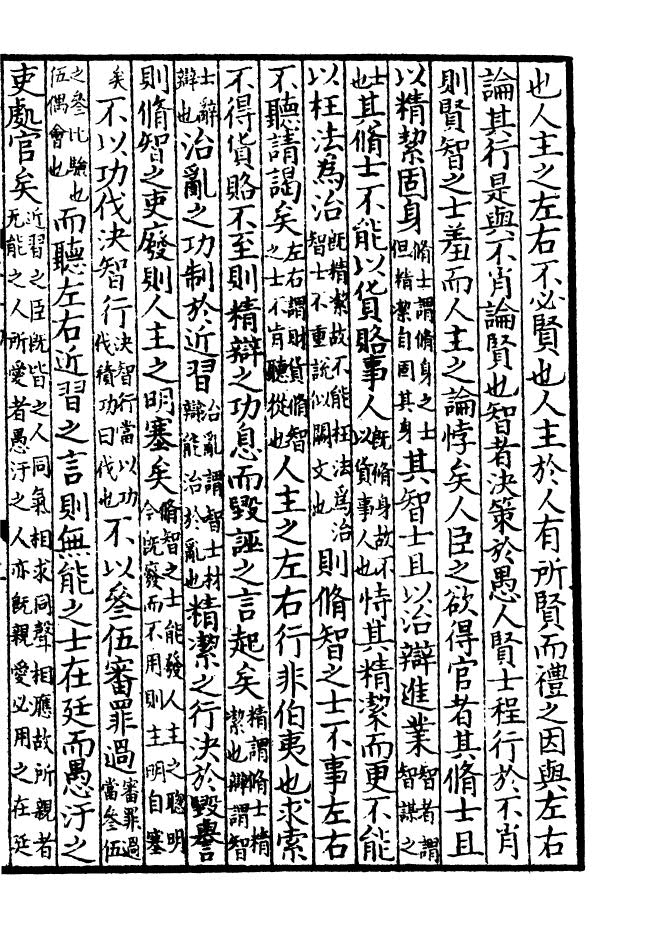 也人主之左右不必賢也人主於人有所賢而禮之因與左右
論其行是與不肖論賢也智者決策於愚人賢士程行於不肖
則賢智之士羞而人主之論悖矣人臣之欲得官者其脩士且
以精絜固身脩士謂脩身之士但精潔自固其身其智士且以治辯進業智者謂智謀之
士也其脩士不能以貨賂事人既脩身故不以貨事人也恃其精潔而更不能
以枉法為治既精潔故不能枉法爲治智士不重說似闕文也則脩智之士不事左右
不聽請謁矣左右謂財貨脩智之士不肯聽從也人主之左右行非伯夷也求索
不得貨賂不至則精辯之功息而毀誣之言起矣精謂脩士精潔也辯謂智
士辭辯也治亂之功制於近習治亂謂智士材辯能治於亂也精潔之行決於毀譽
則脩智之吏廢則人主之明塞矣脩智之士能發人主之聰明今旣廢而不用則主明自塞
矣不以功伐決智行決智行當以功伐積功曰伐也不以叄伍審罪過審罪過當叄伍
之叄比驗也伍偶會也而聽左右近習之言則無能之士在廷而愚汙之
吏處官矣近習之臣旣皆之人同氣相求同聲相應故所親者无能之人所愛者愚汙之人亦旣親愛必用之在廷